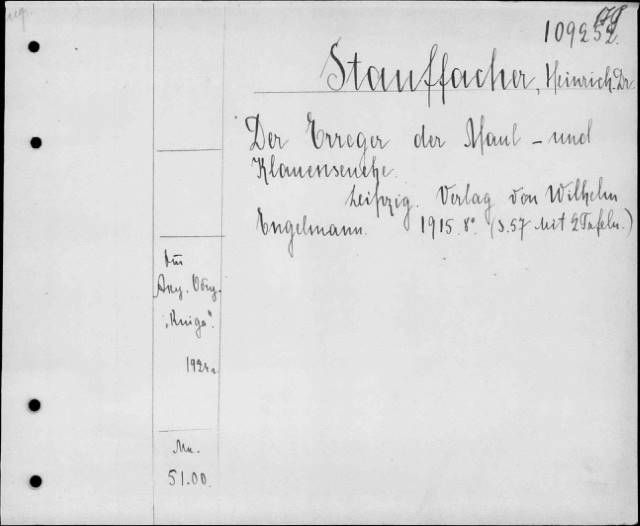 109252.
Stauffacher, Heinrich. Dr.
Der Erreger der Maul - und
Klauenseuche.
Leipzig. Verlag von Wilhelm
Engelmann. 1915. 8°. (S. 57 Mit 2 Tafeln.)
"Kniga".
Mn.
51.00.